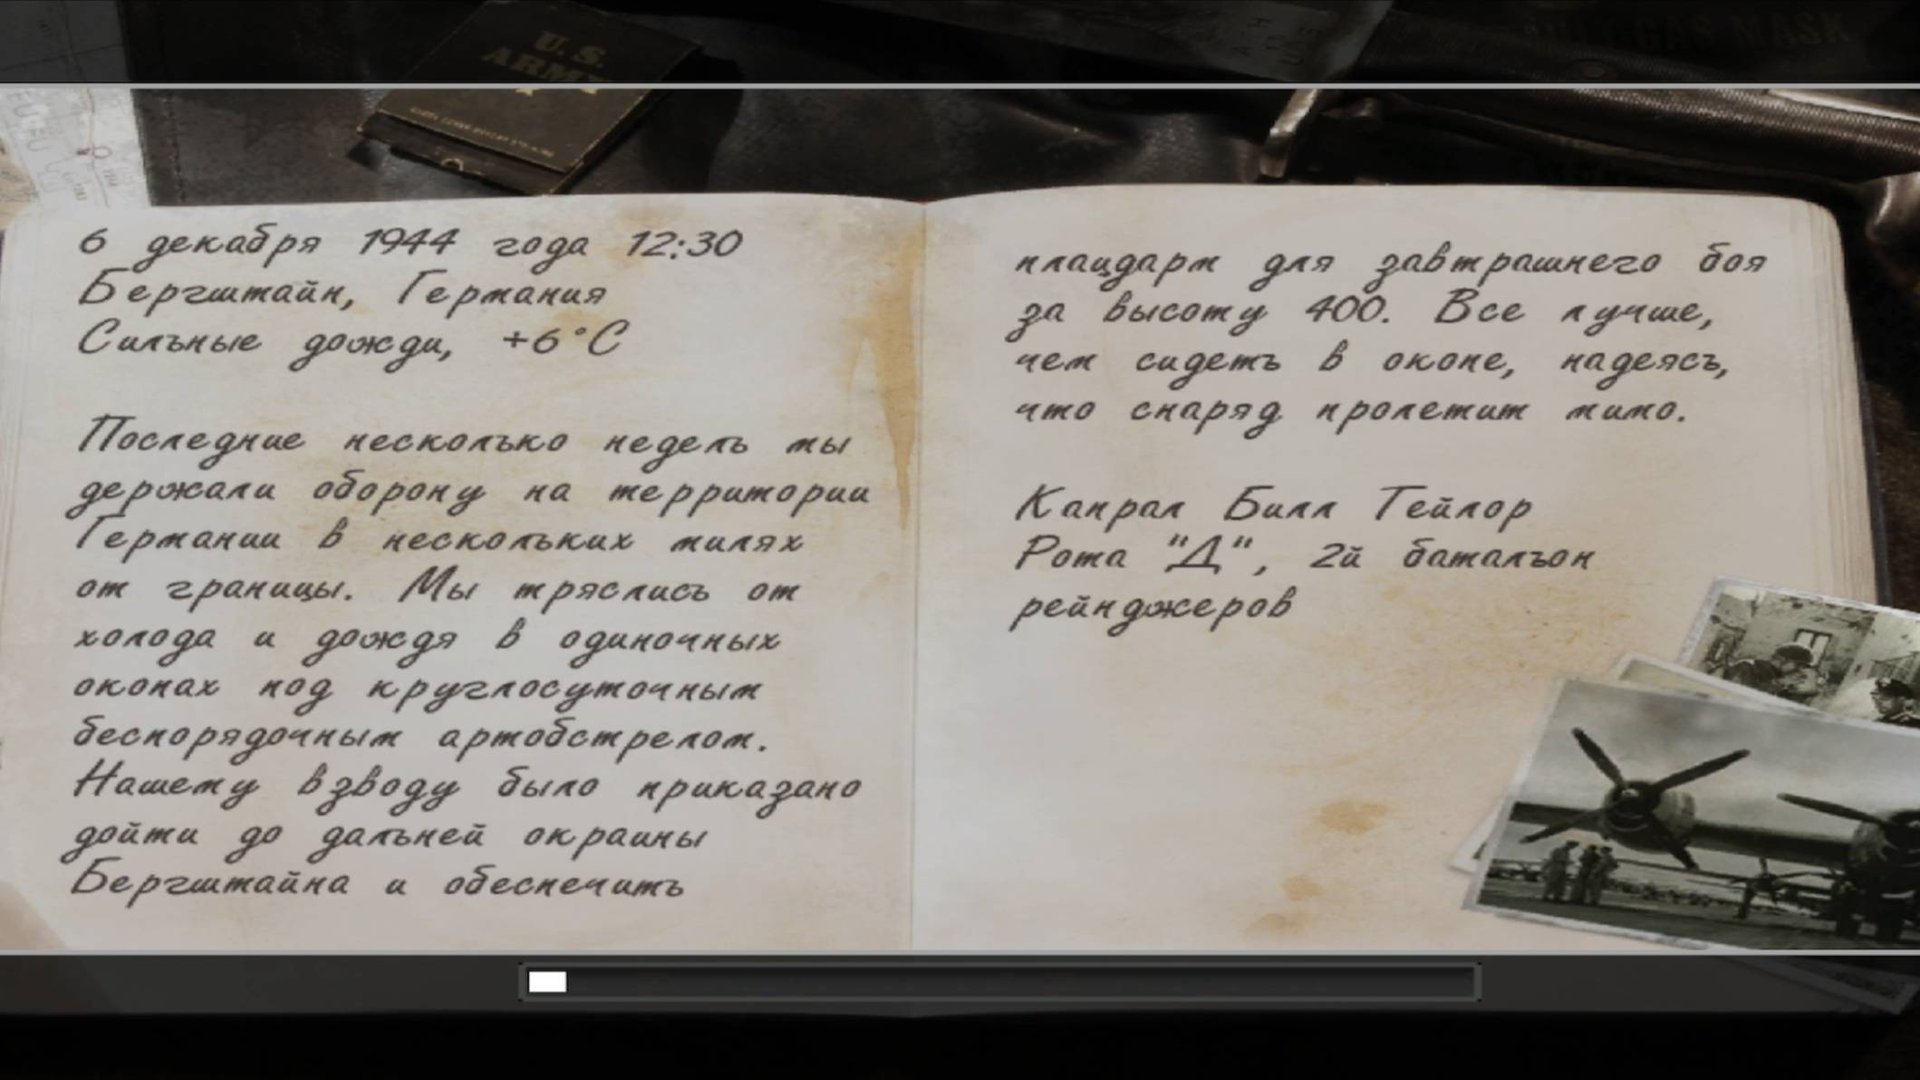 U.S.
ARMY
6 декабря 1944 года 12:30
Бергштайн, Германия
Сильные дожди, +6°C
Последние несколько недель мы
держали оборону на территории
Германии в нескольких милях
от границы. Мы тряслись от
холода и дождя в одиночных
окопах под круглосуточным
беспорядочным артобстрелом.
Нашему взводу было приказано
дойти до дальней окраины
Бергштайна и обеспечить
плацдарм для завтрашнего боя
за высоту 400. Все лучше,
чем сидеть в окопе, надеясь,
что снаряд пролетит мимо.
Капрал Билл Тейлор
Рота "Д", 2й батальон
рейнджеров